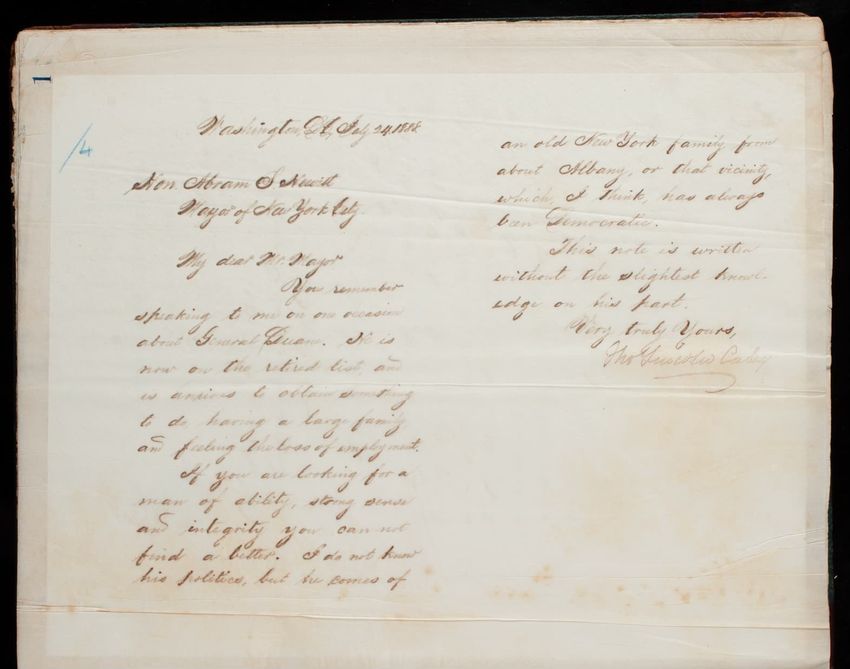 1
/4
Washington, D.C., July 24, 1888
Hon. Abram S Hewitt
Mayor of New York City.
My dear Mr. Mayor
You remember
speaking to me on one occasion
about General Duane. He is
now on the retired list, and
is anxious to obtain something
to do, having a large family
and feeling the loss of employment.
If you are looking for a
man of ability, strong sense
and integrity you can not
find a better. I do not know
his politics, but he comes of
an old New York family from
about Albany, or that vicinity,
which, I think, has always
been Democratic.
This note is written
without the slightest knowl-
edge on his part.
Very truly Yours,
Thos Lincoln Casey